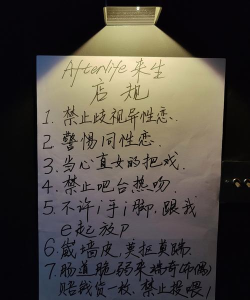 Afterlife来生
店规
1. 禁止歧视异性恋.
2. 警惕同性恋.
3. 当心直女的把戏.
4. 禁止吧台热吻.
5. 不许i手i脚.跟我
e起放p
6. 戚墙皮,莫抠莫踹
7. 肠道脆弱来
赔钱货一枚.禁止投喂!